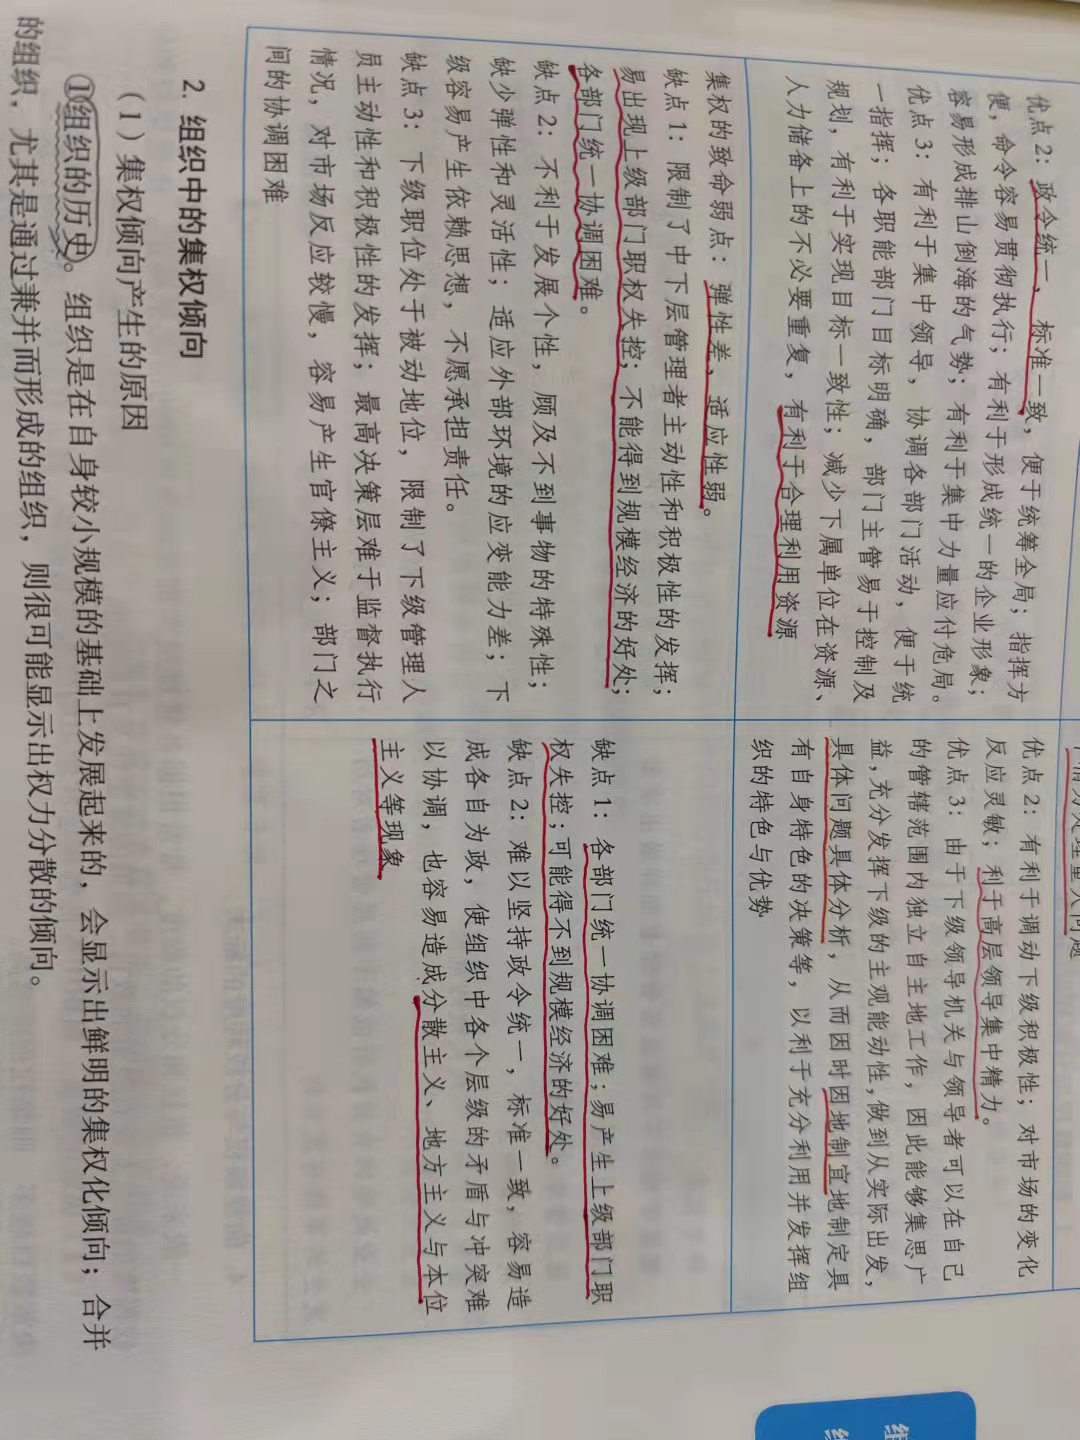 优点 2：政令统一，标准一致，便于统筹全局；指挥方
便，命令容易贯彻执行；有利于形成统一的企业形象；
容易形成排山倒海的气势；有利于集中力量应付危局。
优点 3：有利于集中领导，协调各部门活动，便于统
一指挥；各职能部门目标明确，部门主管易于控制及
规划，有利于实现目标一致性；减少下属单位在资源、
人力储备上的不必要重复，有利于合理利用资源
优点 2：有利于调动下级积极性；对市场的变化
反应灵敏；利于高层领导集中精力。
优点 3：由于下级领导机关与领导者可以在自己
的管辖范围内独立自主地工作，因此能够集思广
益，充分发挥下级的主观能动性，做到从实际出发，
具体问题具体分析，从而因时因地制宜地制定具
有自身特色的决策等，以利于充分利用并发挥组
织的特色与优势
集权的致命弱点：弹性差，适应性弱。
缺点 1：限制了中下层管理者主动性和积极性的发挥；
易出现上级部门职权失控；不能得到规模经济的好处；
各部门统一协调困难。
缺点 2：不利于发展个性，顾及不到事物的特殊性；
缺少弹性和灵活性；适应外部环境的应变能力差；下
级容易产生依赖思想，不愿承担责任。
缺点 3：下级职位处于被动地位，限制了下级管理人
员主动性和积极性的发挥；最高决策层难于监督执行
情况，对市场反应较慢，容易产生官僚主义；部门之
间的协调困难
缺点 1：各部门统一协调困难；易产生上级部门职
权失控；可能得不到规模经济的好处。
缺点 2：难以坚持政令统一，标准一致，容易造
成各自为政，使组织中各个层级的矛盾与冲突难
以协调，也容易造成分散主义、地方主义与本位
主义等现象
2. 组织中的集权倾向
（1）集权倾向产生的原因
①组织的历史。组织是在自身较小规模的基础上发展起来的，会显示出鲜明的集权化倾向；合并
的组织，尤其是通过兼并而形成的组织，则很可能显示出权力分散的倾向。